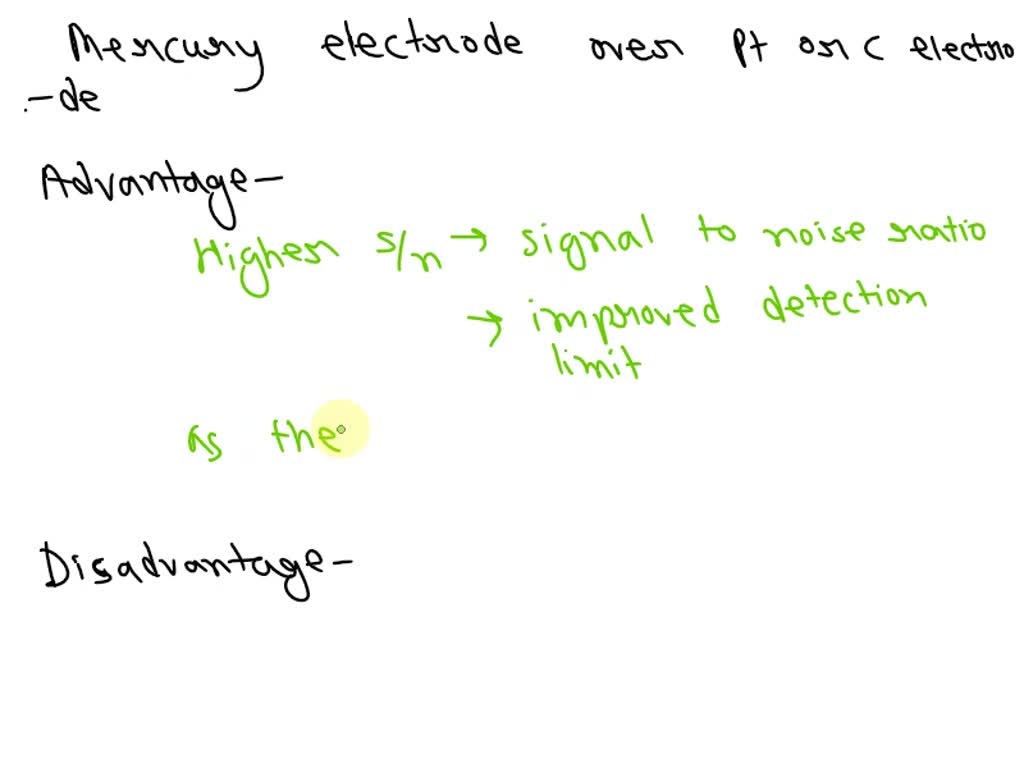 Mercury electrode over Pt or C electro
-de
Advantage-
Higher S/n → signal to noise ratio
→ improved detection
limit
as the
Disadvantage-